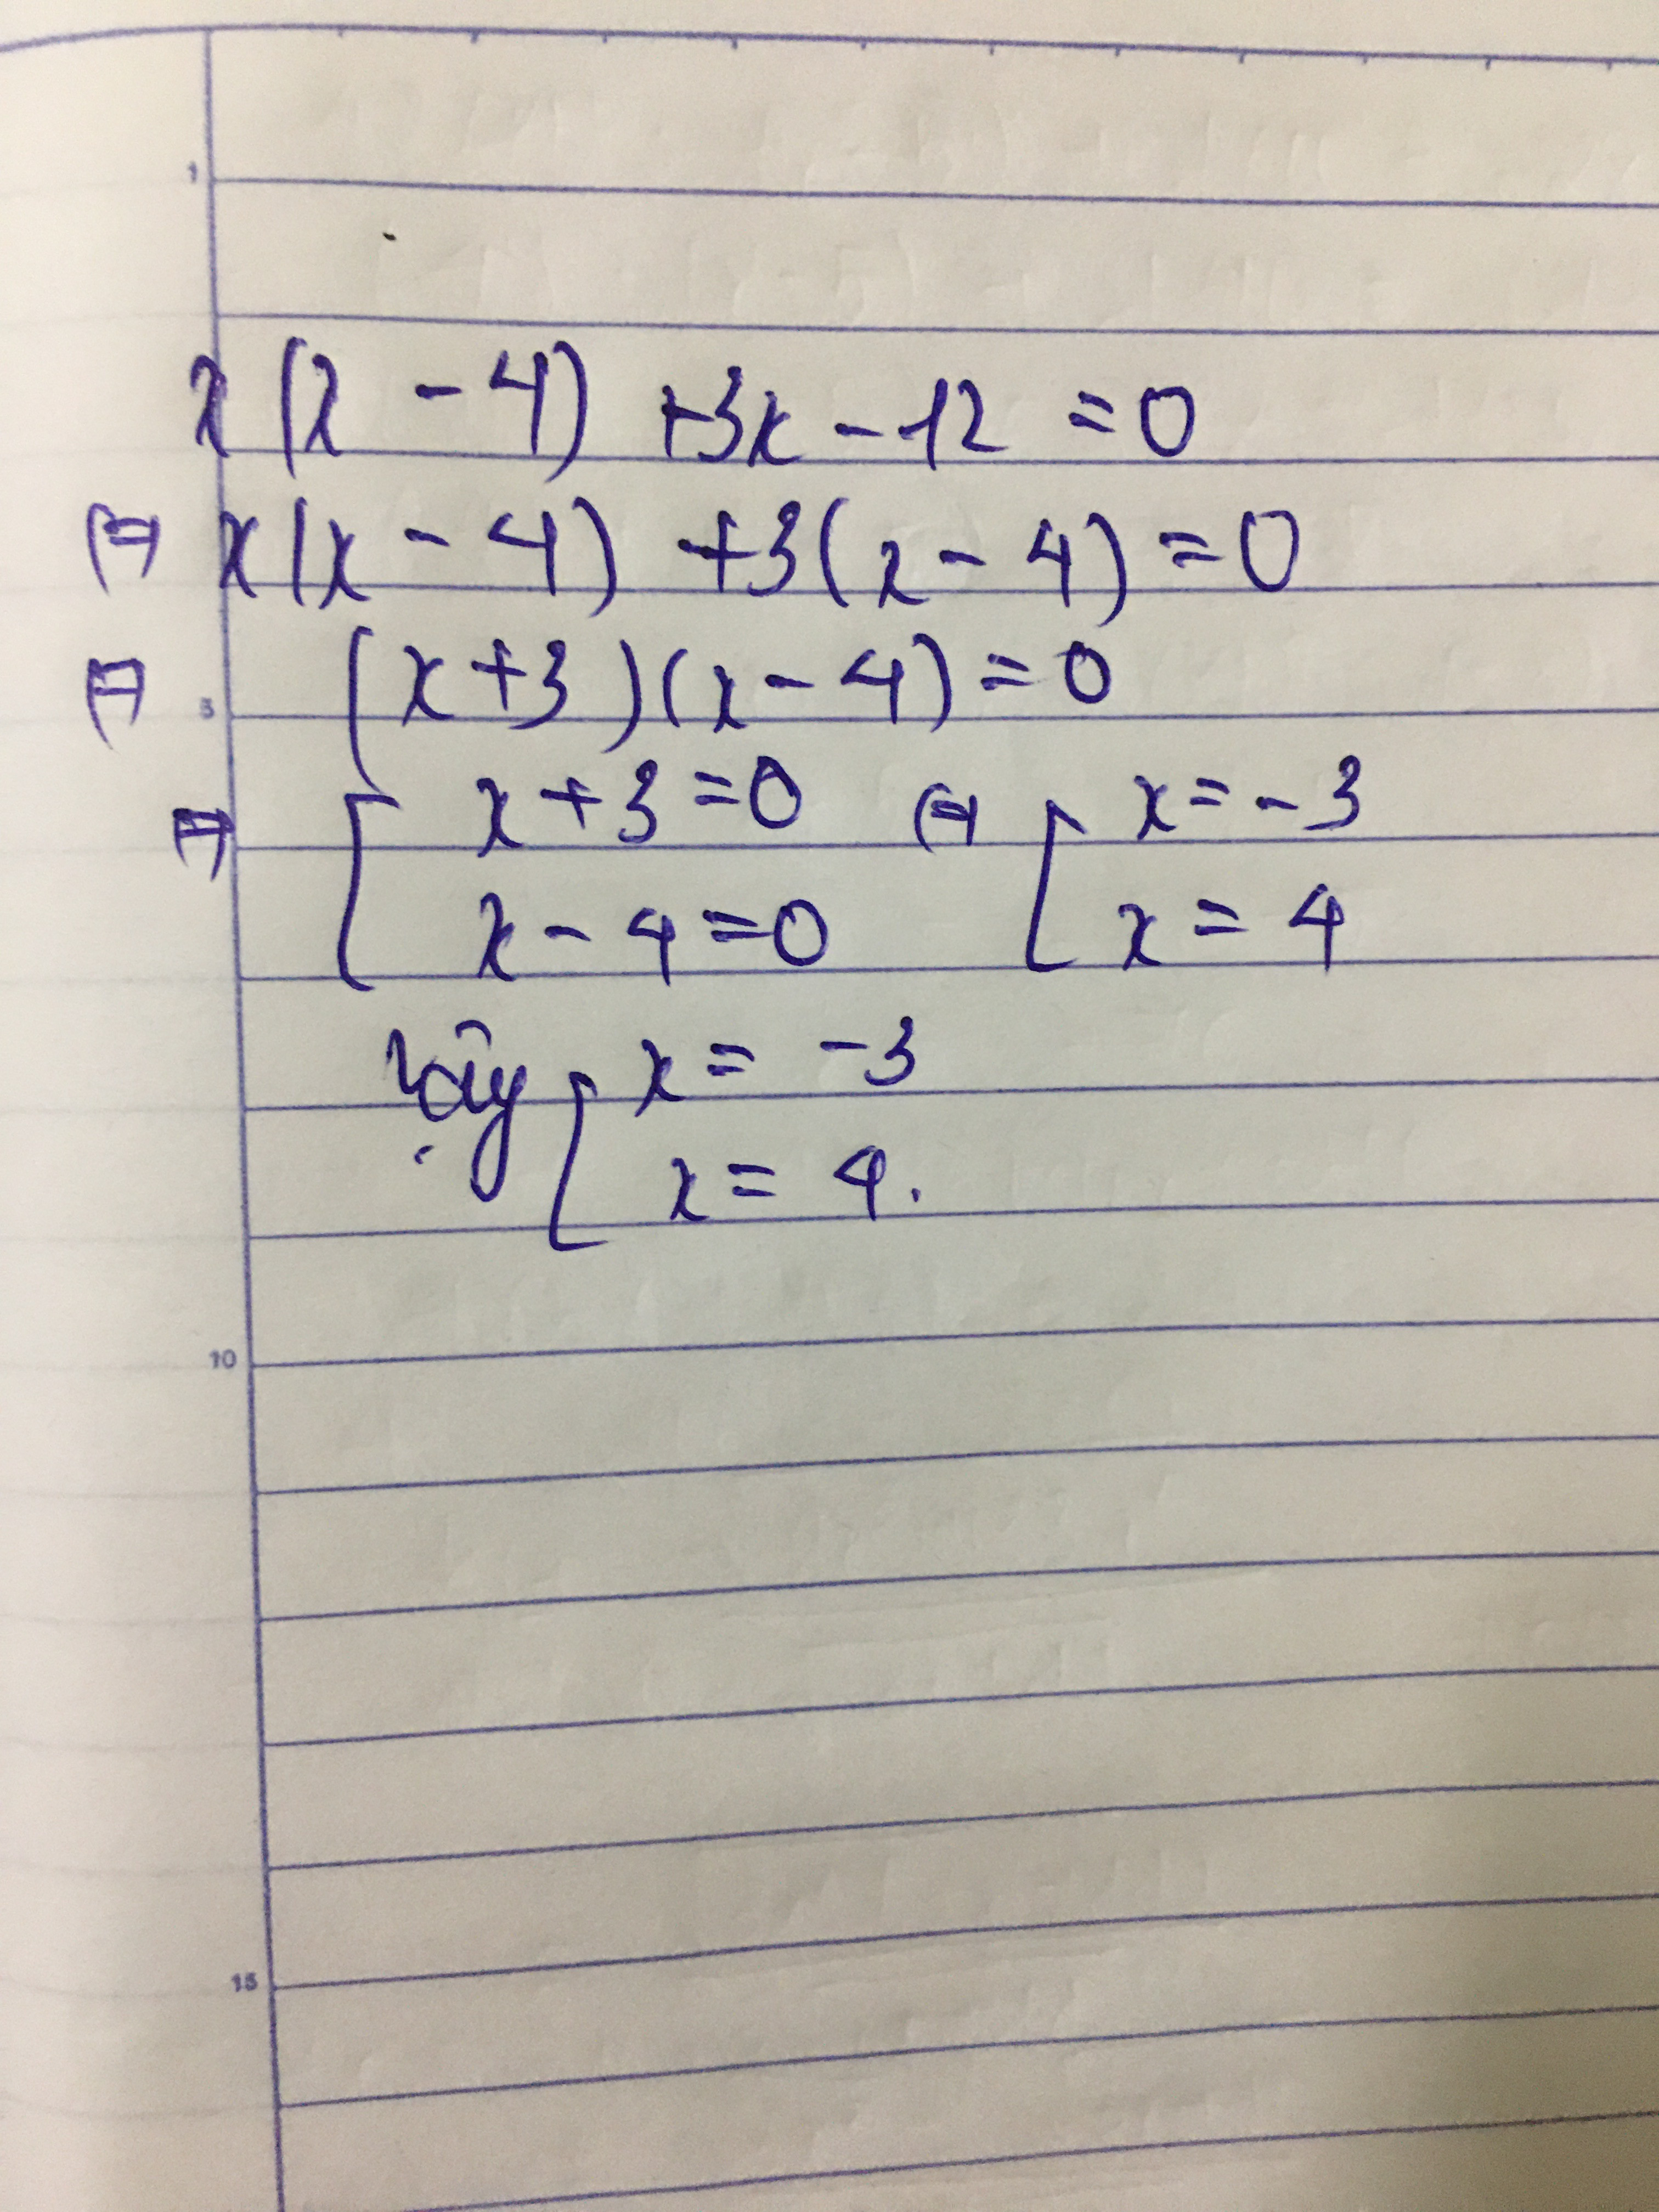 1
x(x - 4) + 3x - 12 = 0
⇔ x(x - 4) + 3(x - 4) = 0
⇔ (x + 3)(x - 4) = 0
5
⇔ [ x + 3 = 0 ⇔ [ x = -3
x - 4 = 0 x = 4
Vậy [ x = -3
x = 4.
10
15